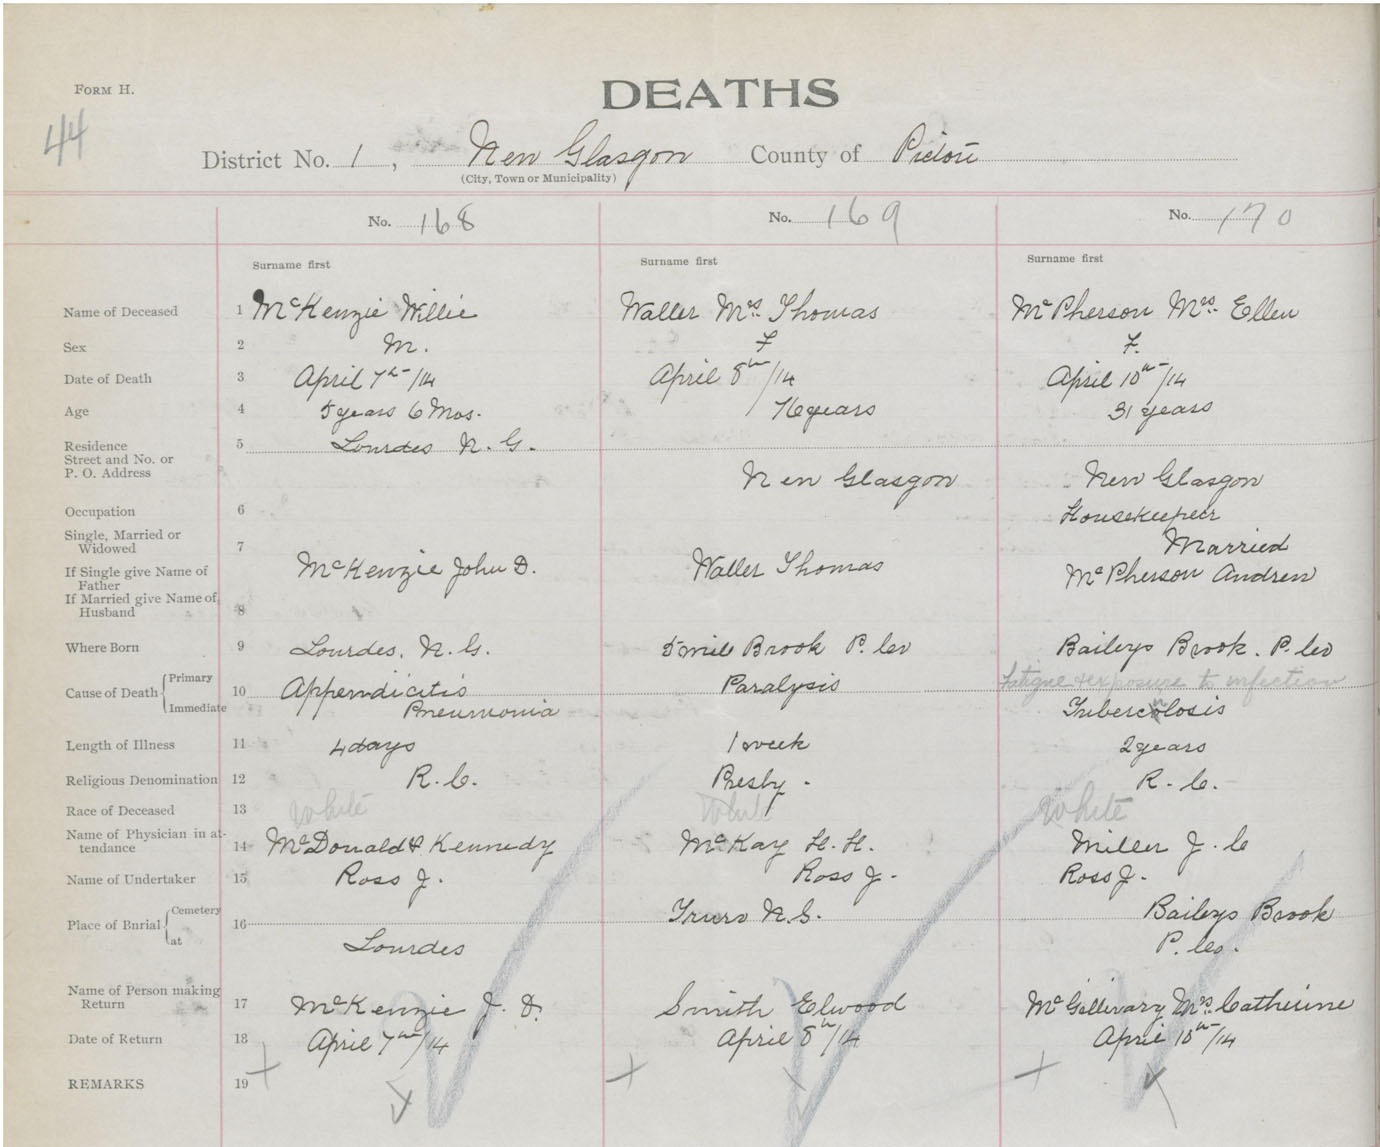 FORM H.
DEATHS
44
District No. 1, New Glasgow County of Pictou
(City, Town or Municipality)
No. 168 No. 169 No. 170
Surname first Surname first Surname first
Name of Deceased 1 McKenzie Willie Waller Mrs. Thomas McPherson Mrs. Ellen
Sex 2 M. F F.
Date of Death 3 April 7th/14 April 8th/14 April 10th/14
Age 4 5 years 6 Mos. 76 years 31 years
Residence
Street and No. or
P. O. Address 5 Lourdes N. G. New Glasgow New Glasgow
Occupation 6 Housekeeper
Single, Married or
Widowed 7 Married
If Single give Name of
Father McKenzie John D. Waller Thomas McPherson Andrew
If Married give Name of
Husband 8
Where Born 9 Lourdes, N. G. 5 mile Brook P. Co Baileys Brook. P. Co
Cause of Death Primary 10 Appendicitis Paralysis Fatigue & exposure to infection
Immediate Pneumonia Tuberculosis
Length of Illness 11 4 days 1 week 2 years
Religious Denomination 12 R. C. Presby. R. C.
Race of Deceased 13 White White White
Name of Physician in at-
tendance 14 McDonald & Kennedy McKay H. H. Miller J. C
Name of Undertaker 15 Ross J. Ross J. Ross J.
Place of Burial Cemetery 16 Truro N. S. Baileys Brook
at Lourdes P. Co.
Name of Person making
Return 17 McKenzie J. D. Smith Elwood McGillivary Mrs. Catherine
Date of Return 18 April 7th/14 April 8th/14 April 10th/14
REMARKS 19